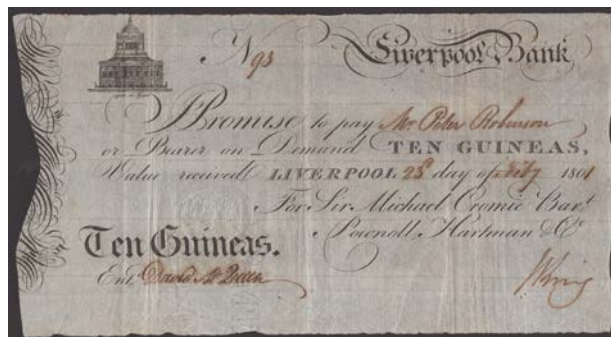 No 93 Liverpool Bank
I Promise to pay Mr Peter Robinson
or Bearer on Demand TEN GUINEAS,
Value received LIVERPOOL 23d day of July 1801
For Sir Michael Cromie Bart
Pownoll, Hartman & Co
Ten Guineas.
Ent David